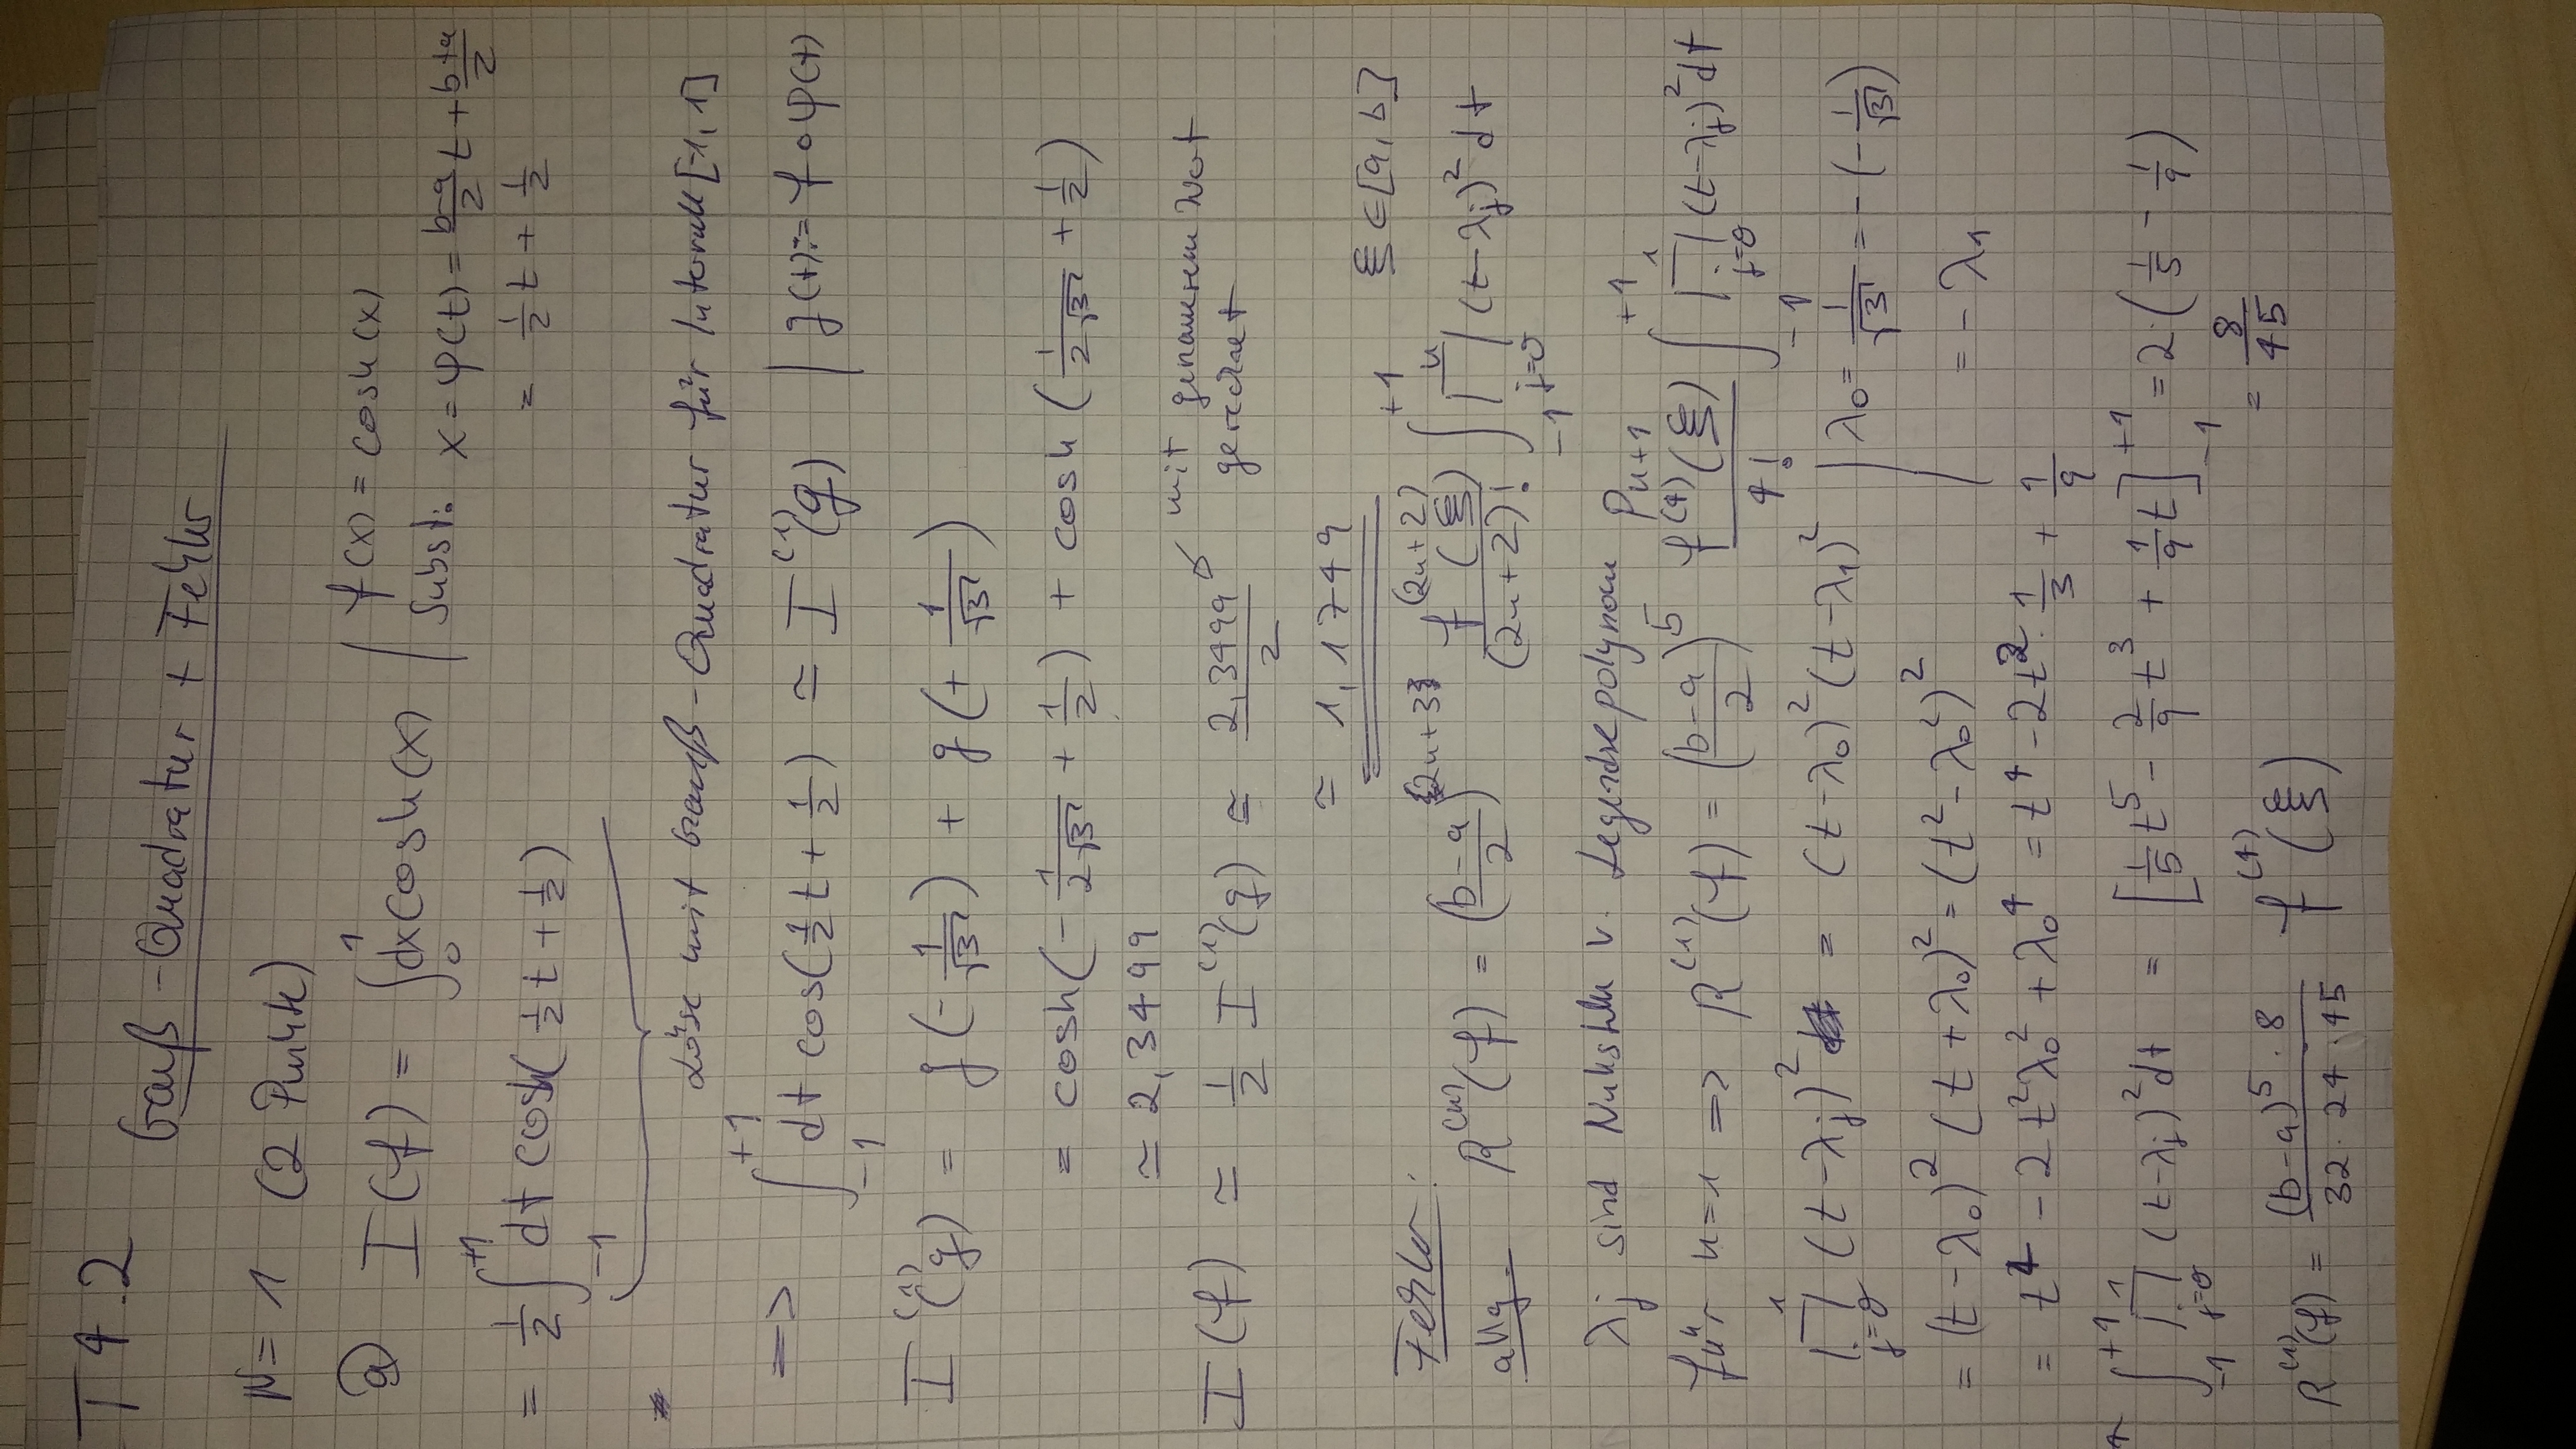 T 4.2
Gauß-Quadratur + Fehler
N = 1 (2 Punkte)
a) I(f) = ∫_0^1 dx cosh(x) | f(x) = cosh(x)
Subst: x = φ(t) = (b-a)/2 t + (b+a)/2
= 1/2 ∫_{-1}^{+1} dt cosh(1/2 t + 1/2)
= 1/2 t + 1/2
Löse mit Gauß-Quadratur für Intervall [-1, 1]
=> ∫_{-1}^{+1} dt cos(1/2 t + 1/2) ≃ I^(1)(g) | g(t) := f∘φ(t)
I^(1)(g) = g(- 1/√3) + g(+ 1/√3)
= cosh(- 1/(2√3) + 1/2) + cosh(1/(2√3) + 1/2)
≃ 2,3499
mit genauerem Wert
gerechnet
I(f) ≃ 1/2 I^(1)(g) ≃ 2,3499/2
≃ 1,1749
Fehler: ξ ∈ [a, b]
allg. R^(n)(f) = ((b-a)/2)^{2n+3} f^(2n+2)(ξ)/(2n+2)! ∫_{-1}^{+1} ∏_{j=0}^{n} (t-λj)² dt
λj sind Nullstellen v. Legendrepolynom P_{n+1}
für n=1 => R^(1)(f) = ((b-a)/2)^5 f^(4)(ξ)/4! ∫_{-1}^{+1} ∏_{j=0}^{1} (t-λj)² dt
∏_{j=0}^{1} (t-λj)² = (t-λ0)² (t-λ1)² | λ0 = 1/√3 = -(- 1/√3)
= (t-λ0)² (t+λ0)² = (t²-λ0²)²
= - λ1
= t⁴ - 2t²λ0² + λ0⁴ = t⁴ - 2t² · 1/3 + 1/9
∫_{-1}^{+1} ∏_{j=0}^{1} (t-λj)² dt = [1/5 t⁵ - 2/9 t³ + 1/9 t]_{-1}^{+1} = 2·(1/5 - 1/9)
= 8/45
R^(1)(f) = (b-a)⁵ · 8 / (32 · 24 · 45) f^(4)(ξ)